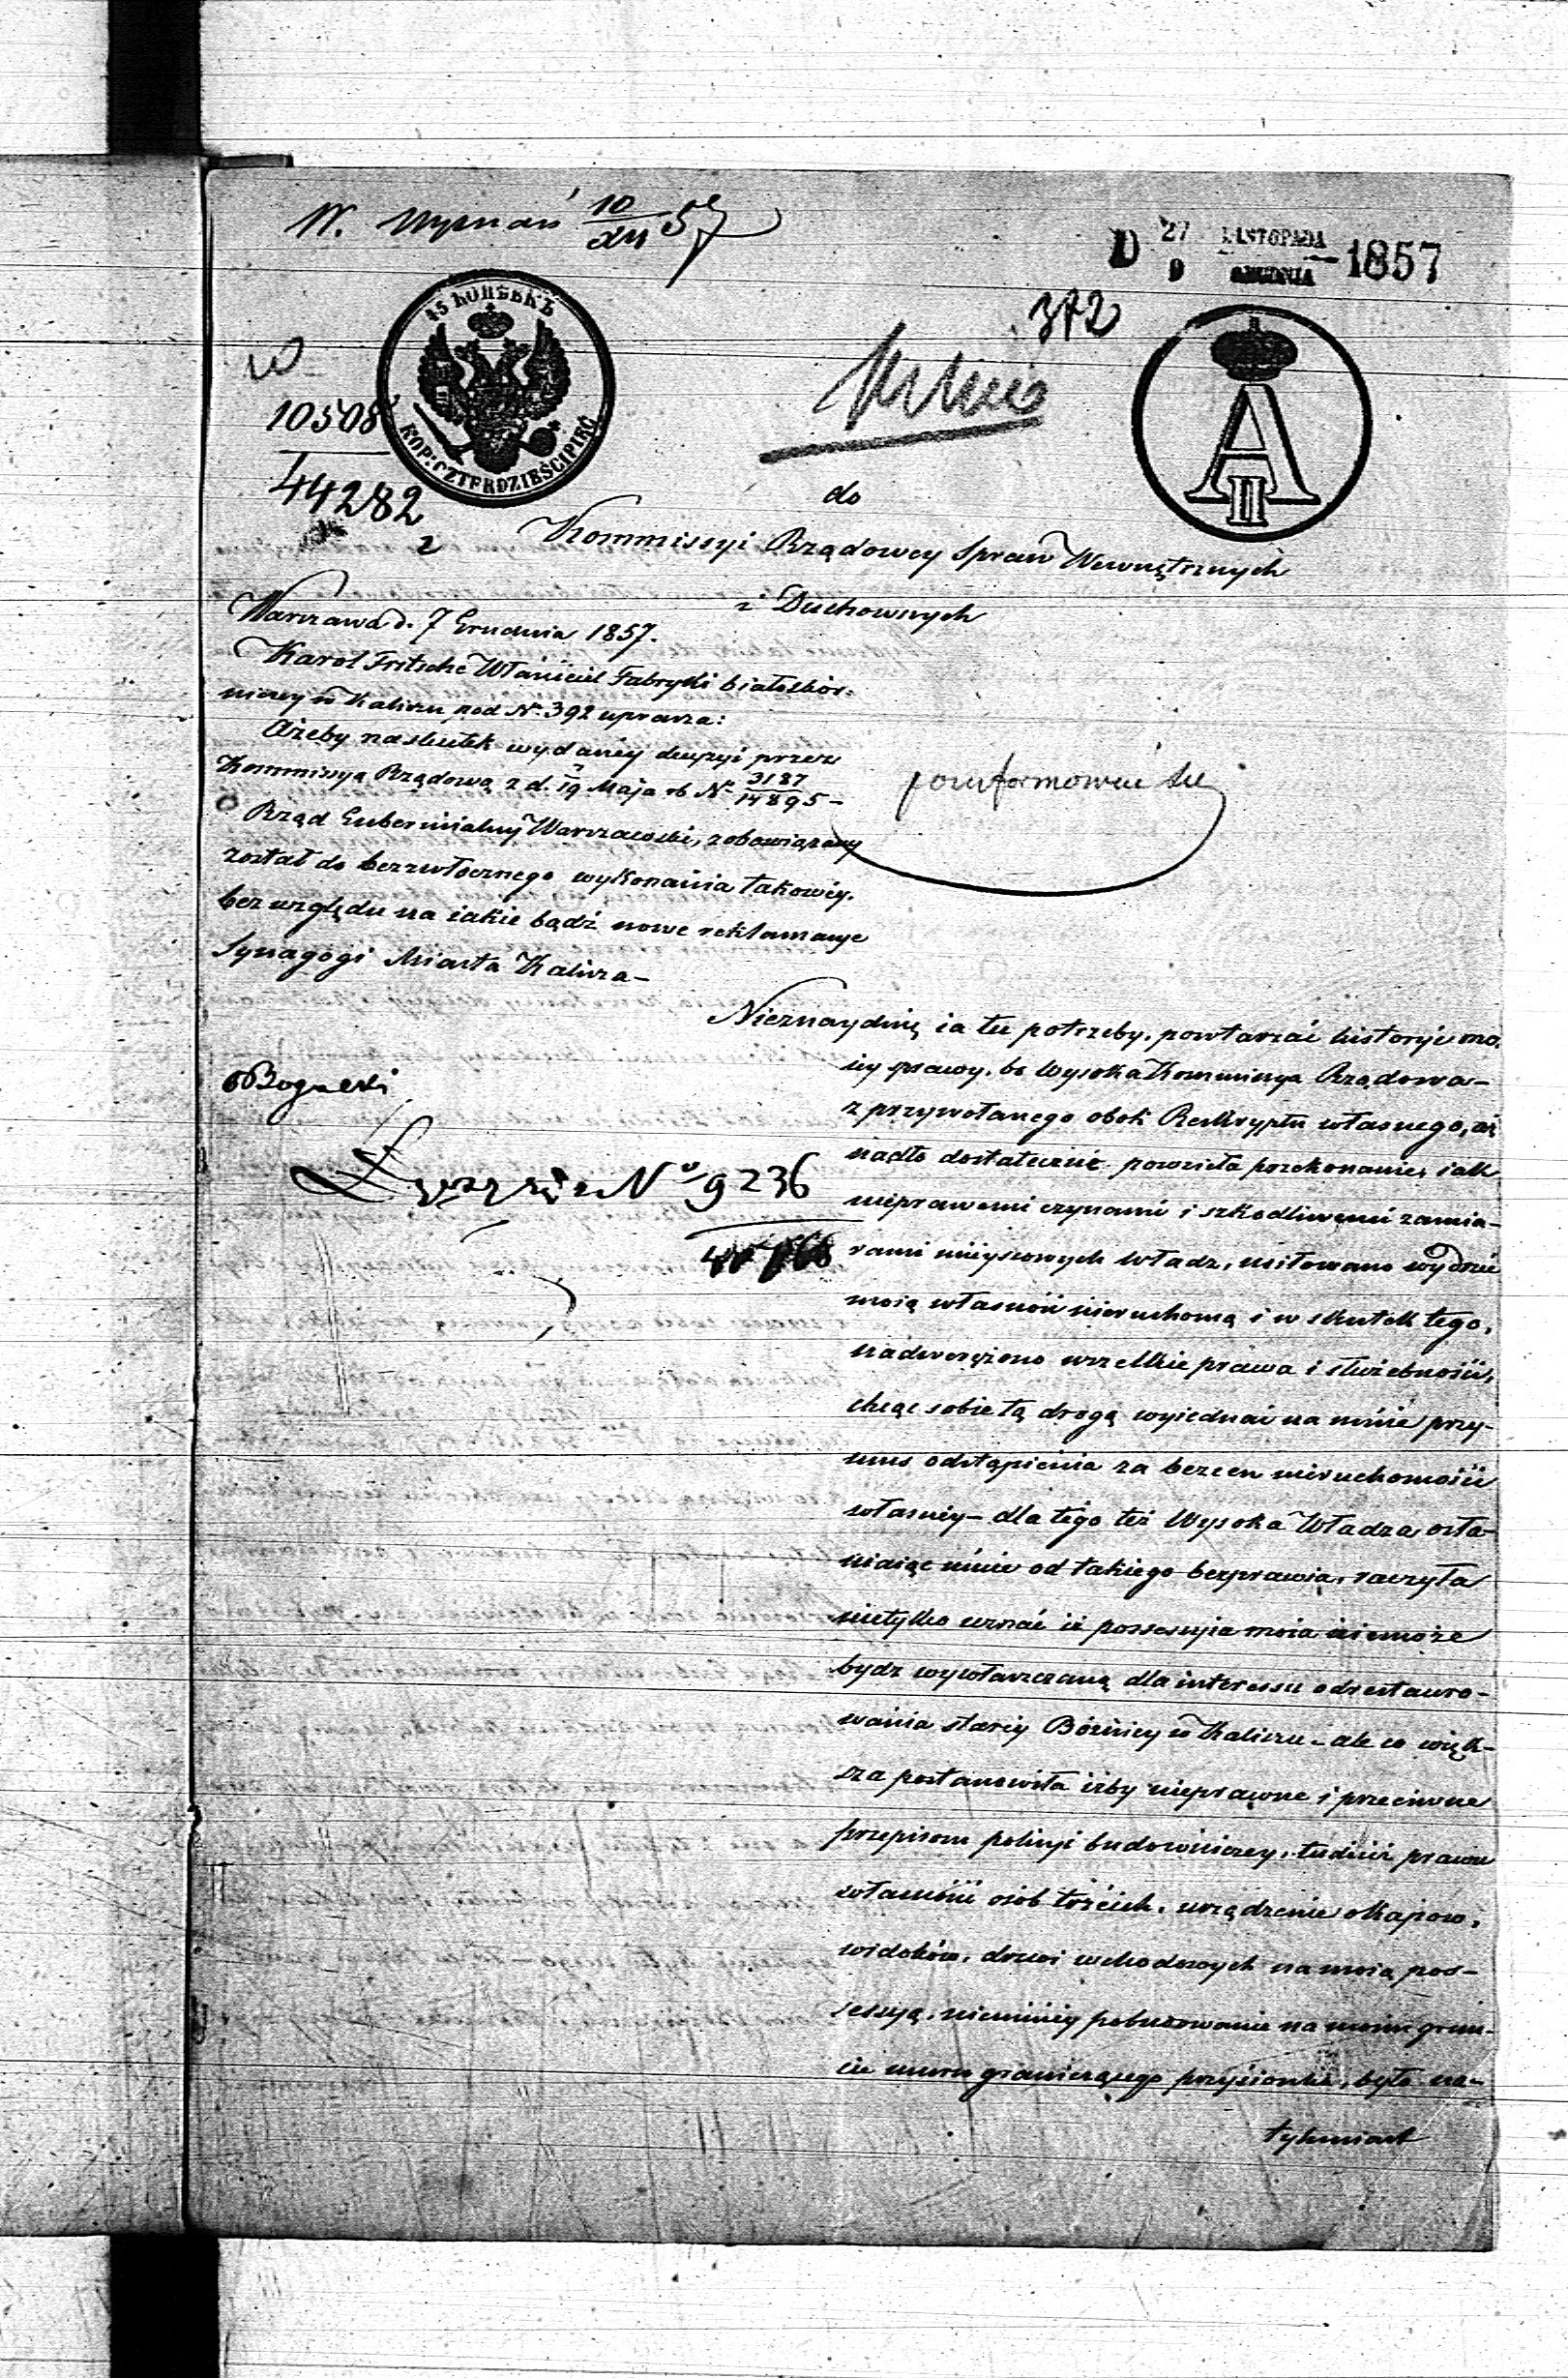 W. Wyznań 10/24 57
D 27 LISTOPADA 1857
9 GRUDNIA
372
W
10508
44282
2
45 КОПѢЕКЪ
KOP: CZTERDZIEŚCI PIĘĆ
A II
do
Kommissyi Rządowey Spraw Wewnętrznych
i Duchownych
Warszawa d. 7 Grudnia 1857.
Karol Fritsche Właściciel Fabryki białoskór-
niczey w Kaliszu pod Nr. 392 uprasza:
Ażeby naskutek wydaney decyzyi przez
Kommissyą Rządową z d. 7/19 Maja rb Nr 3187/14895 –
Rząd Gubernialny Warszawski, zobowiązany
został do bezzwłocznego wykonania takowey.
bez względu na iakie bądź nowe reklamacye
Synagogi Miasta Kalisza –
poinformować się
Nieznayduię ia tu potrzeby, powtarzać historyi mo-
iey sprawy, bo Wysoka Kommissya Rządowa –
z przywołanego obok Reskryptu własnego, aż
nadto dostatecznie powzieła przekonanie, iak
nieprawemi czynami i szkodliwemi zamia-
rami mieyscowych Władz, usiłowano wydrzeć
moią własność nieruchomą i w skutek tego,
nadwerężono wszelkie prawa i służebności,
chcąc sobie tą drogą wyiednać na mnie przy-
mus odstąpienia za bezcen nieruchomości
własney – dla tego też Wysoka Władza osła-
niaiąc mnie od takiego bezprawia, raczyła
nietylko uznać iż possessyia moia niemoże
bydz wywłaszczaną dla interessu odrestauro-
wania starey Bóżnicy w Kaliszu – ale co więk-
sza postanowiła iżby nieprawne i przeciwne
przepisom policyi budowniczey, tudzież prawu
własności osób trzecich, urządzenie okapow,
widoków, drzwi wchodowych na moią pos-
sessyą, niemniey pobudowanie na moim grun-
cie muru graniczącego przysionka, było na-
tychmiast
Nr 9236